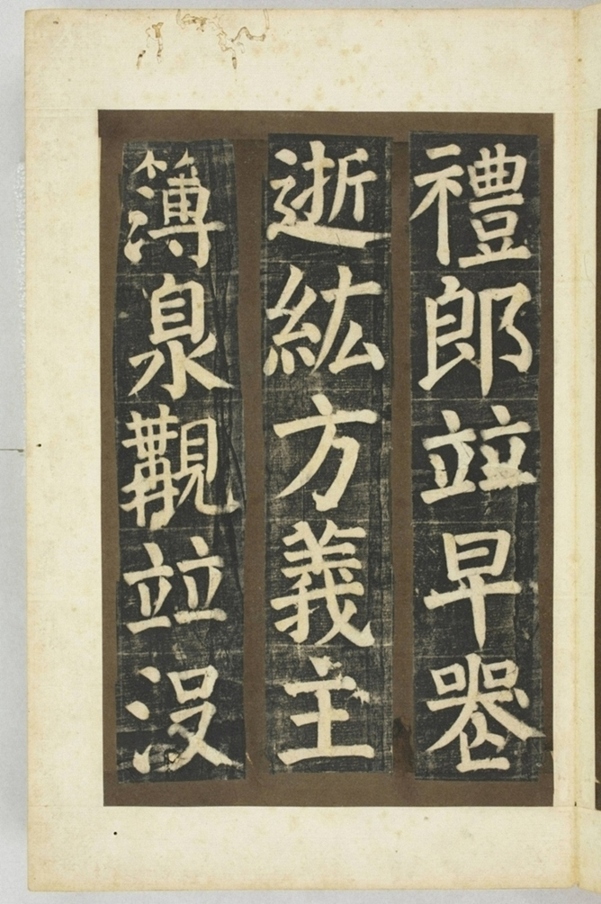 禮郎竝早喪
逝紘方義主
簿泉覯竝沒